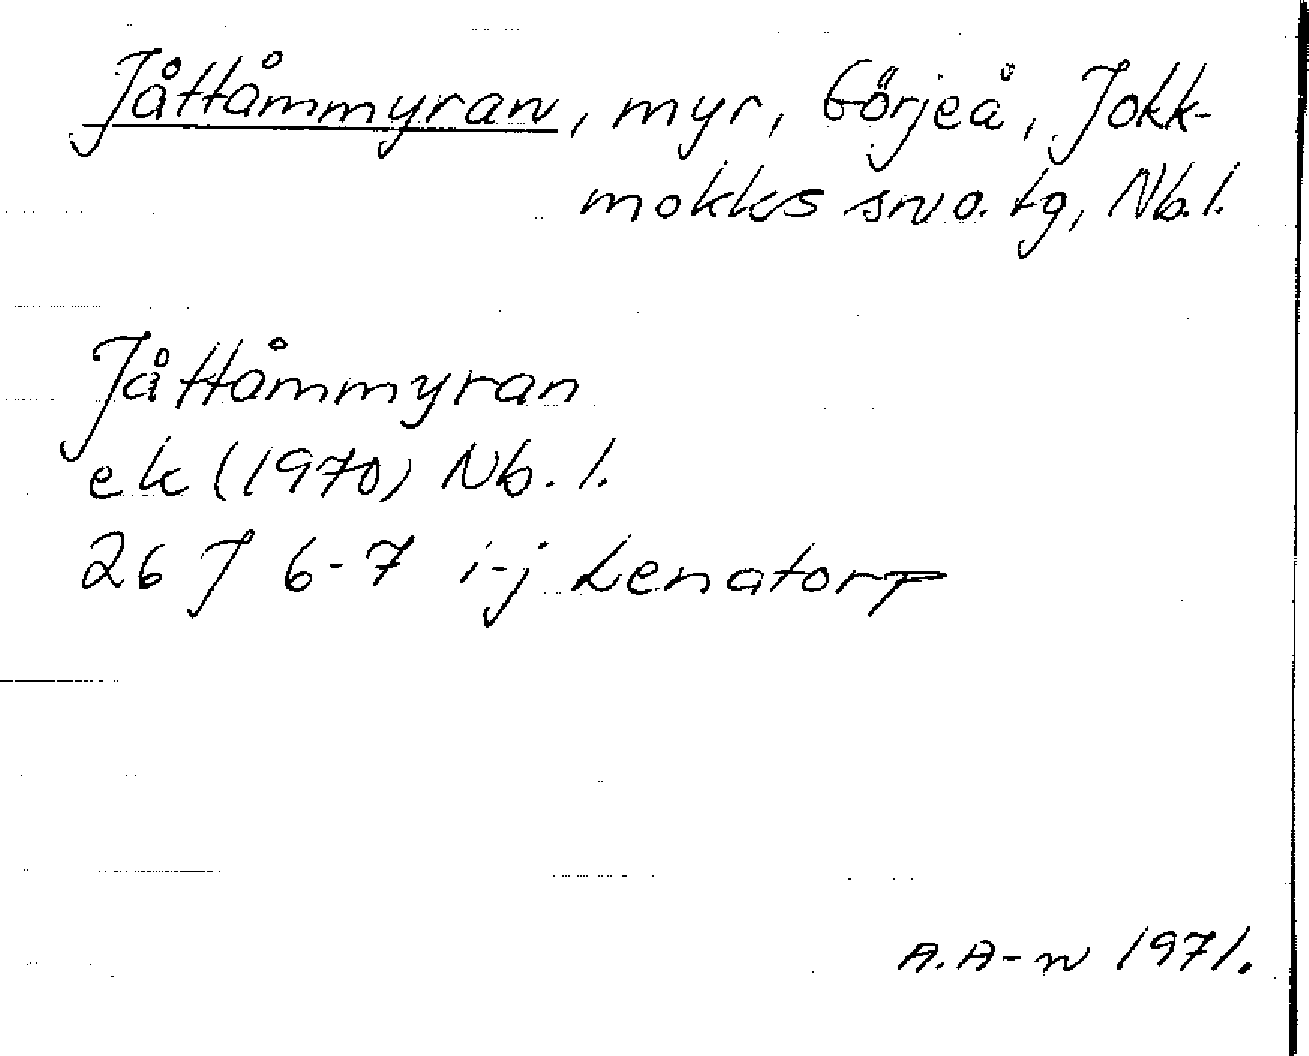 Jåttåmmyran, myr, Görjeå, Jokk-
mokks sn o. tg, Nb.l.
Jåttåmmyran
ek (1970) Nb.l.
26 J 6-7 i-j Lenatorp
A.A-n 1971.